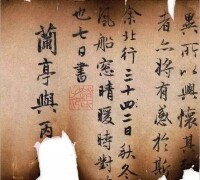 異所以興懷其
者亦將有感於斯
余北行三十四二日秋冬
風船窗晴暖時對
也七日書
蘭亭與丙